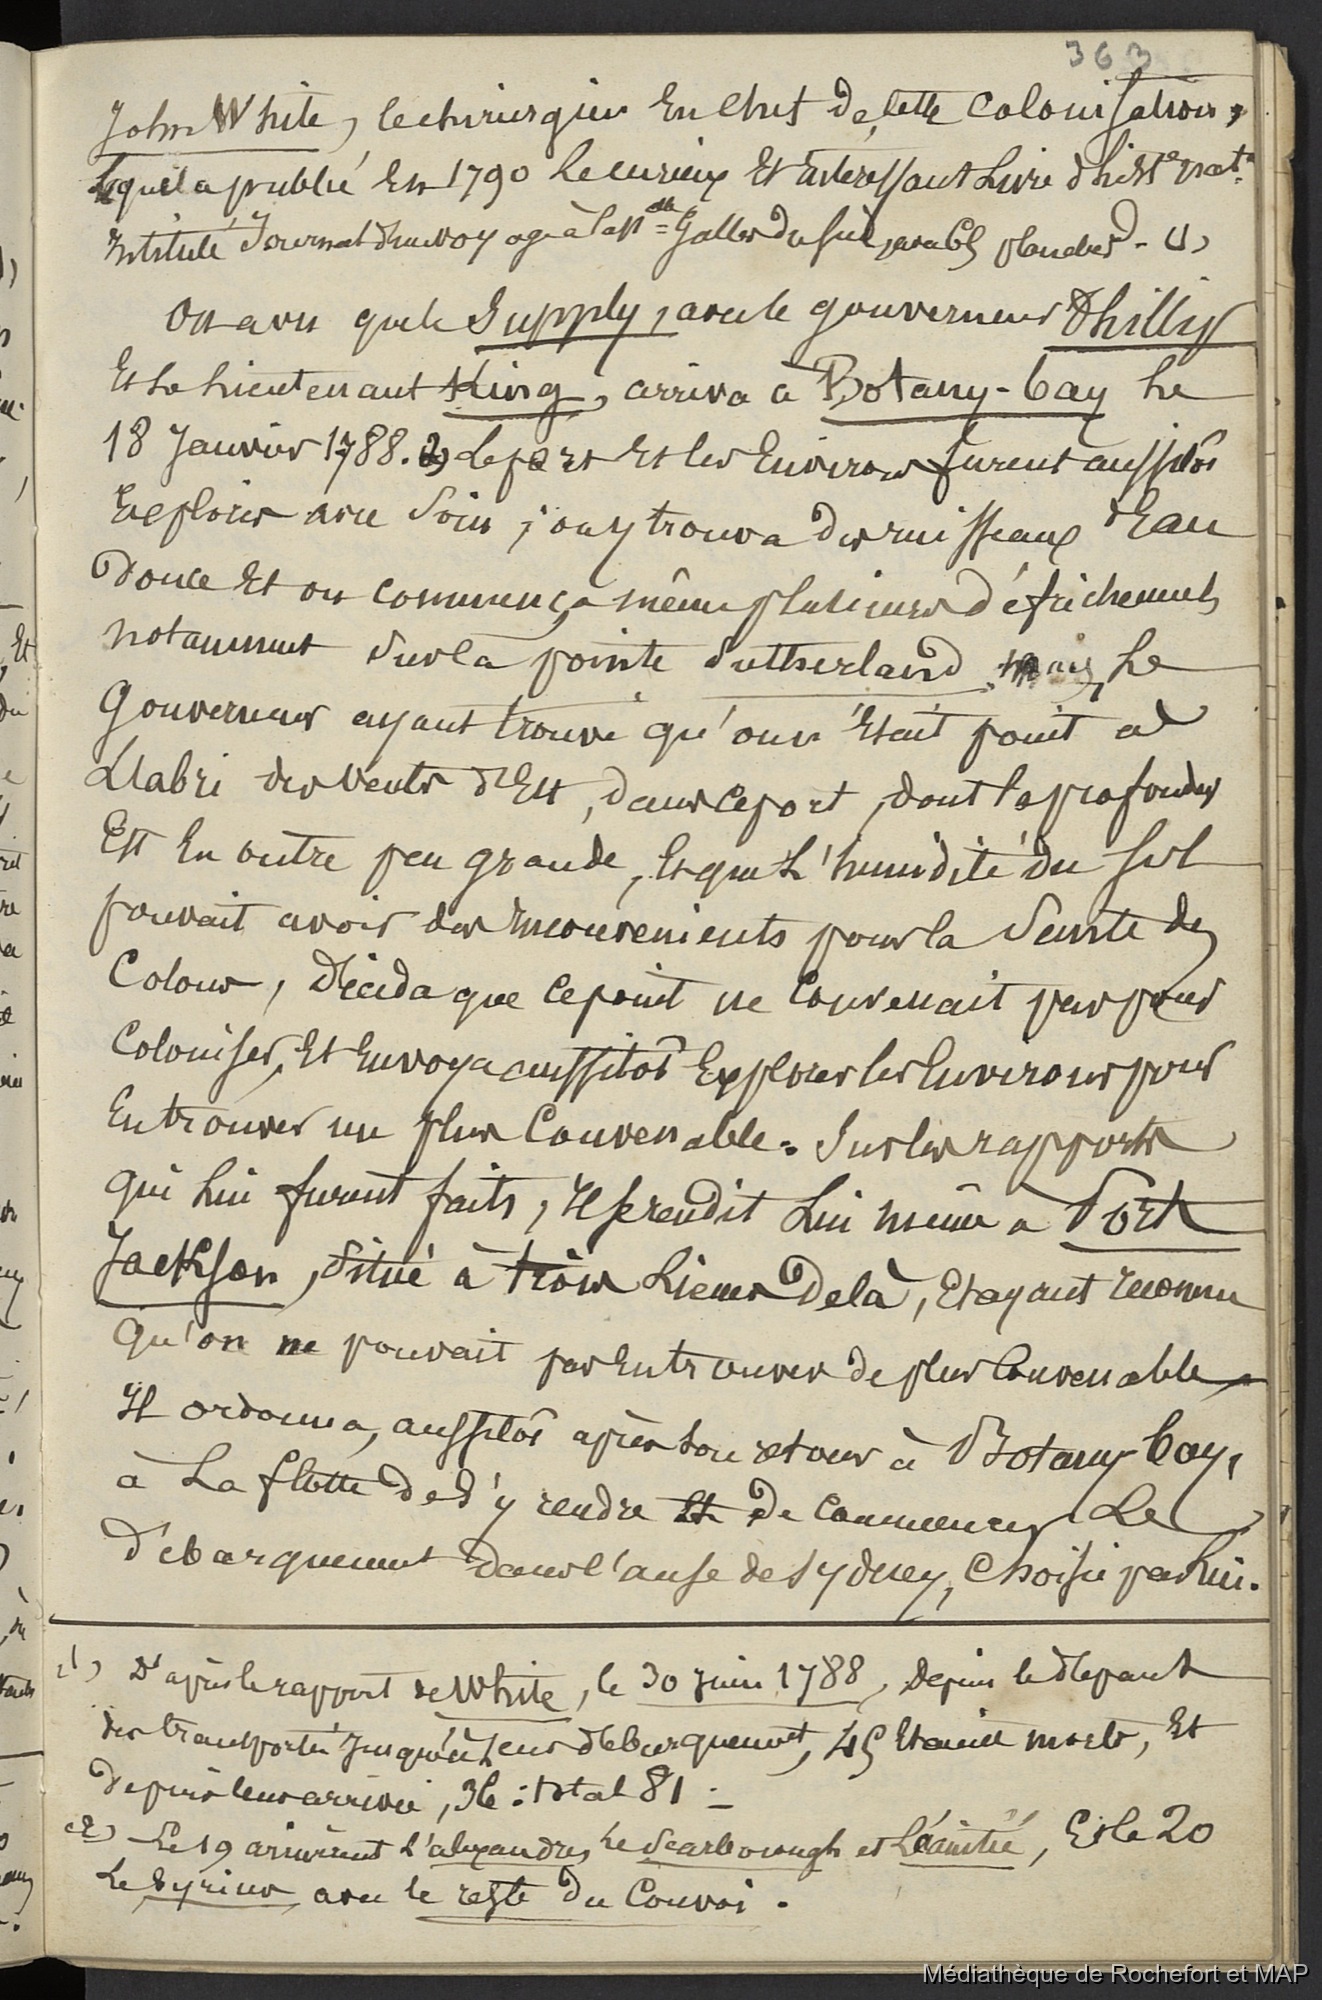 363
John White, le chirurgien En Chef De cette Colonisation,
Lequel a publié En 1790 Le curieux Et intéressant Livre d'hist.re nat.le
Intitulé Journal d'un voyage à la n.lle Galles du Sud, planches - (1)
On a vu que le Supply, avec le gouverneur Phillip
Et Le Lieutenant King, arriva à Botany-bay Le
18 Janvier 1788. (2) Le port Et les Environs furent aussitôt
Explorés avec Soin ; on y trouva des ruisseaux d'Eau
Douce Et on commença même plusieurs défrichements
notamment Sur la pointe Sutherland, mais, Le
Gouverneur ayant trouvé qu'on n'Etait point à
L'abri des Vents d'Est, dans ce port, dont la profondeur
Est En outre peu grande, Et que L'humidité du Sol
pouvait avoir des Inconvenients pour la Santé des
Colons, Décida que ce point ne Convenait pas pour
Coloniser, Et Envoya aussitôt Explorer les Environs pour
En trouver un plus Convenable. Sur les rapports
qui Lui furent faits, Il se rendit Lui même à Port
Jackson, Situé à trois Lieues De là, Et ayant reconnu
qu'on ne pouvait pas En trouver de plus Convenable
Il ordonna, aussitôt après Son retour à Botany bay,
à La flotte De S'y rendre Et De Commencer Le
Débarquement dans l'anse de Sydney, Choisie par Lui.
(1) D'après le rapport de White, le 30 juin 1788, Depuis le départ
des transportés Jusqu'à Leur débarquement, 45 Etaient morts, Et
Depuis leur arrivée, 36 : total 81 -
(2) Le 19 arrivèrent L'alexandre, Le Scarborough et L'amitié, Et le 20
Le Syrius avec le reste du Convoi.
Médiathèque de Rochefort et MAP